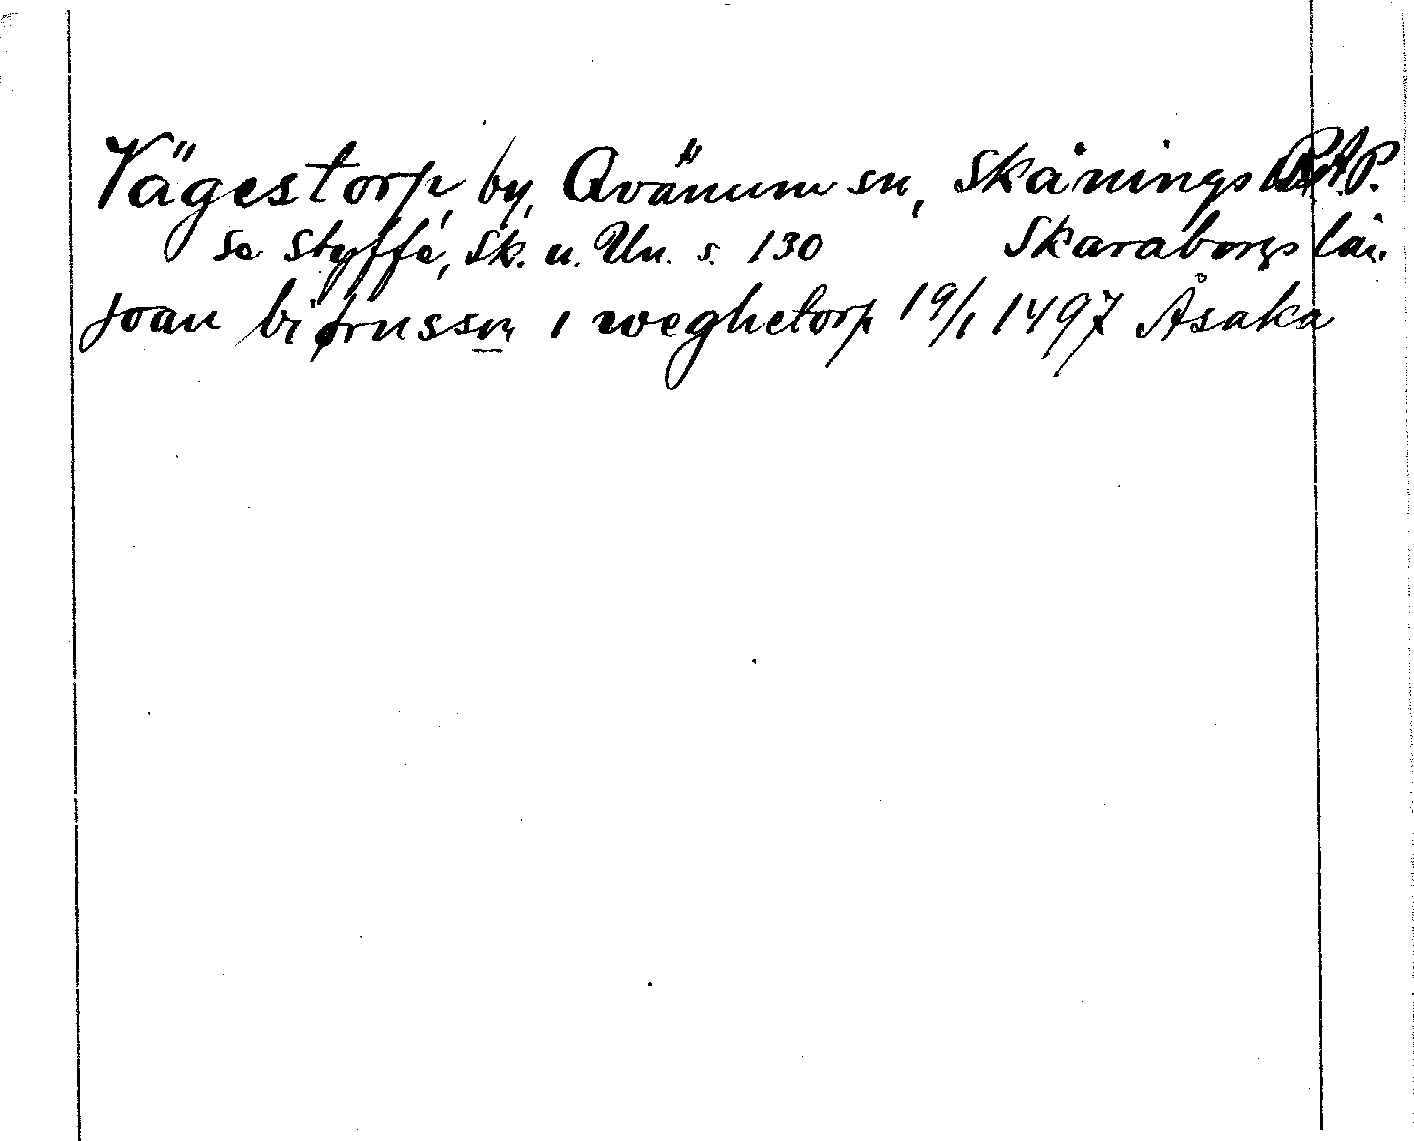 Vägestorp, by, Qvänum sn, Skånings R.A.P.
Se Styffe, Sk. u. Un. s. 130 Skaraborgs län.
joan biørnssn i weghetorp 19/1 1497 Åsaka